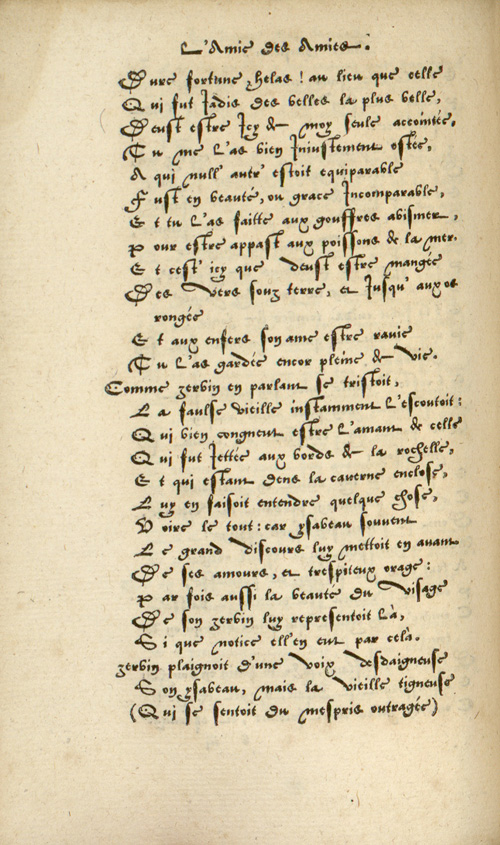 L'Amie des Amies.
Dure fortune, helas! au lieu que celle
Qui fut Jadis des belles la plus belle,
Deust estre Icy de moy seule accointée.
Tu me l'as bien Iniustement ostée,
A qui null' autr' estoit equiparable
Fust en beauté, ou grace Incomparable,
Et tu l'as faitte aux gouffres abismer,
Pour estre appast aux poissons de la mer.
Et cest' icy que deust estre mangée
Des vers souz terre, et Jusqu' aux os
rongée
Et aux enfers son ame estre ravie
Tu l'as gardée encor pleine de vie.
Comme zerbin en parlant se tristoit,
La faulse vieille instamment l'escoutoit:
Qui bien congneut estre l'amant de celle
Qui fut Jettée aux bords de la rochelle,
Et qui estant dens la caverne enclose,
Luy en faisoit entendre quelque chose,
Voire le tout: car ysabeau souvent
Le grand discours luy mettoit en avant
De ses amours, et trespiteux orage:
Par fois aussi la beauté du visage
De son zerbin luy representoit là,
Si que notice ell'en eut par cela.
zerbin plaignoit d'une voix desdaigneuse
Son ysabeau, mais la vieille tigneuse
(Qui se sentoit du mespris outragée)